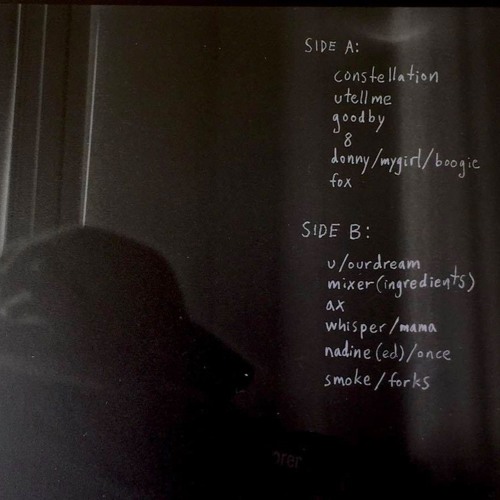 SIDE A:
constellation
utellme
goodby
8
donny/mygirl/boogie
fox
SIDE B:
u/ourdream
mixer(ingredients)
ax
whisper/mama
nadine(ed)/once
smoke/forks